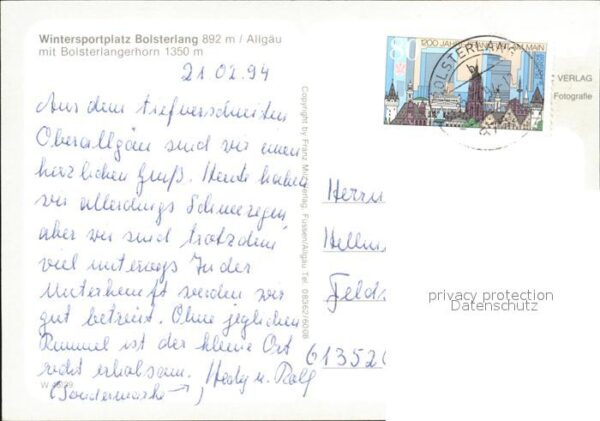 Wintersportplatz Bolsterlang 892 m / Allgäu
mit Bolsterlangerhorn 1350 m
21 02. 94
Aus dem tiefverschneiten
Oberallgäu sind wir einen
herzlichen Gruß. Heute haben
wir allerdings Schneeregen
aber wir sind trotzdem
viel unterwegs In der
Unterkunft werden wir
gut betreut. Ohne jeglichen
Rummel ist der kleine Ort
recht erholsam. Hedy u. Rolf
(Sondermarke →)
Copyright by Franz Verlag, Füssen/Allgäu Tel. 08362/6008
80
1200 JAHRE FRANKFURT AM MAIN
BOLSTERLANG
VERLAG
Fotografie
Herrn
Hellm
Felds
61352
privacy protection
Datenschutz